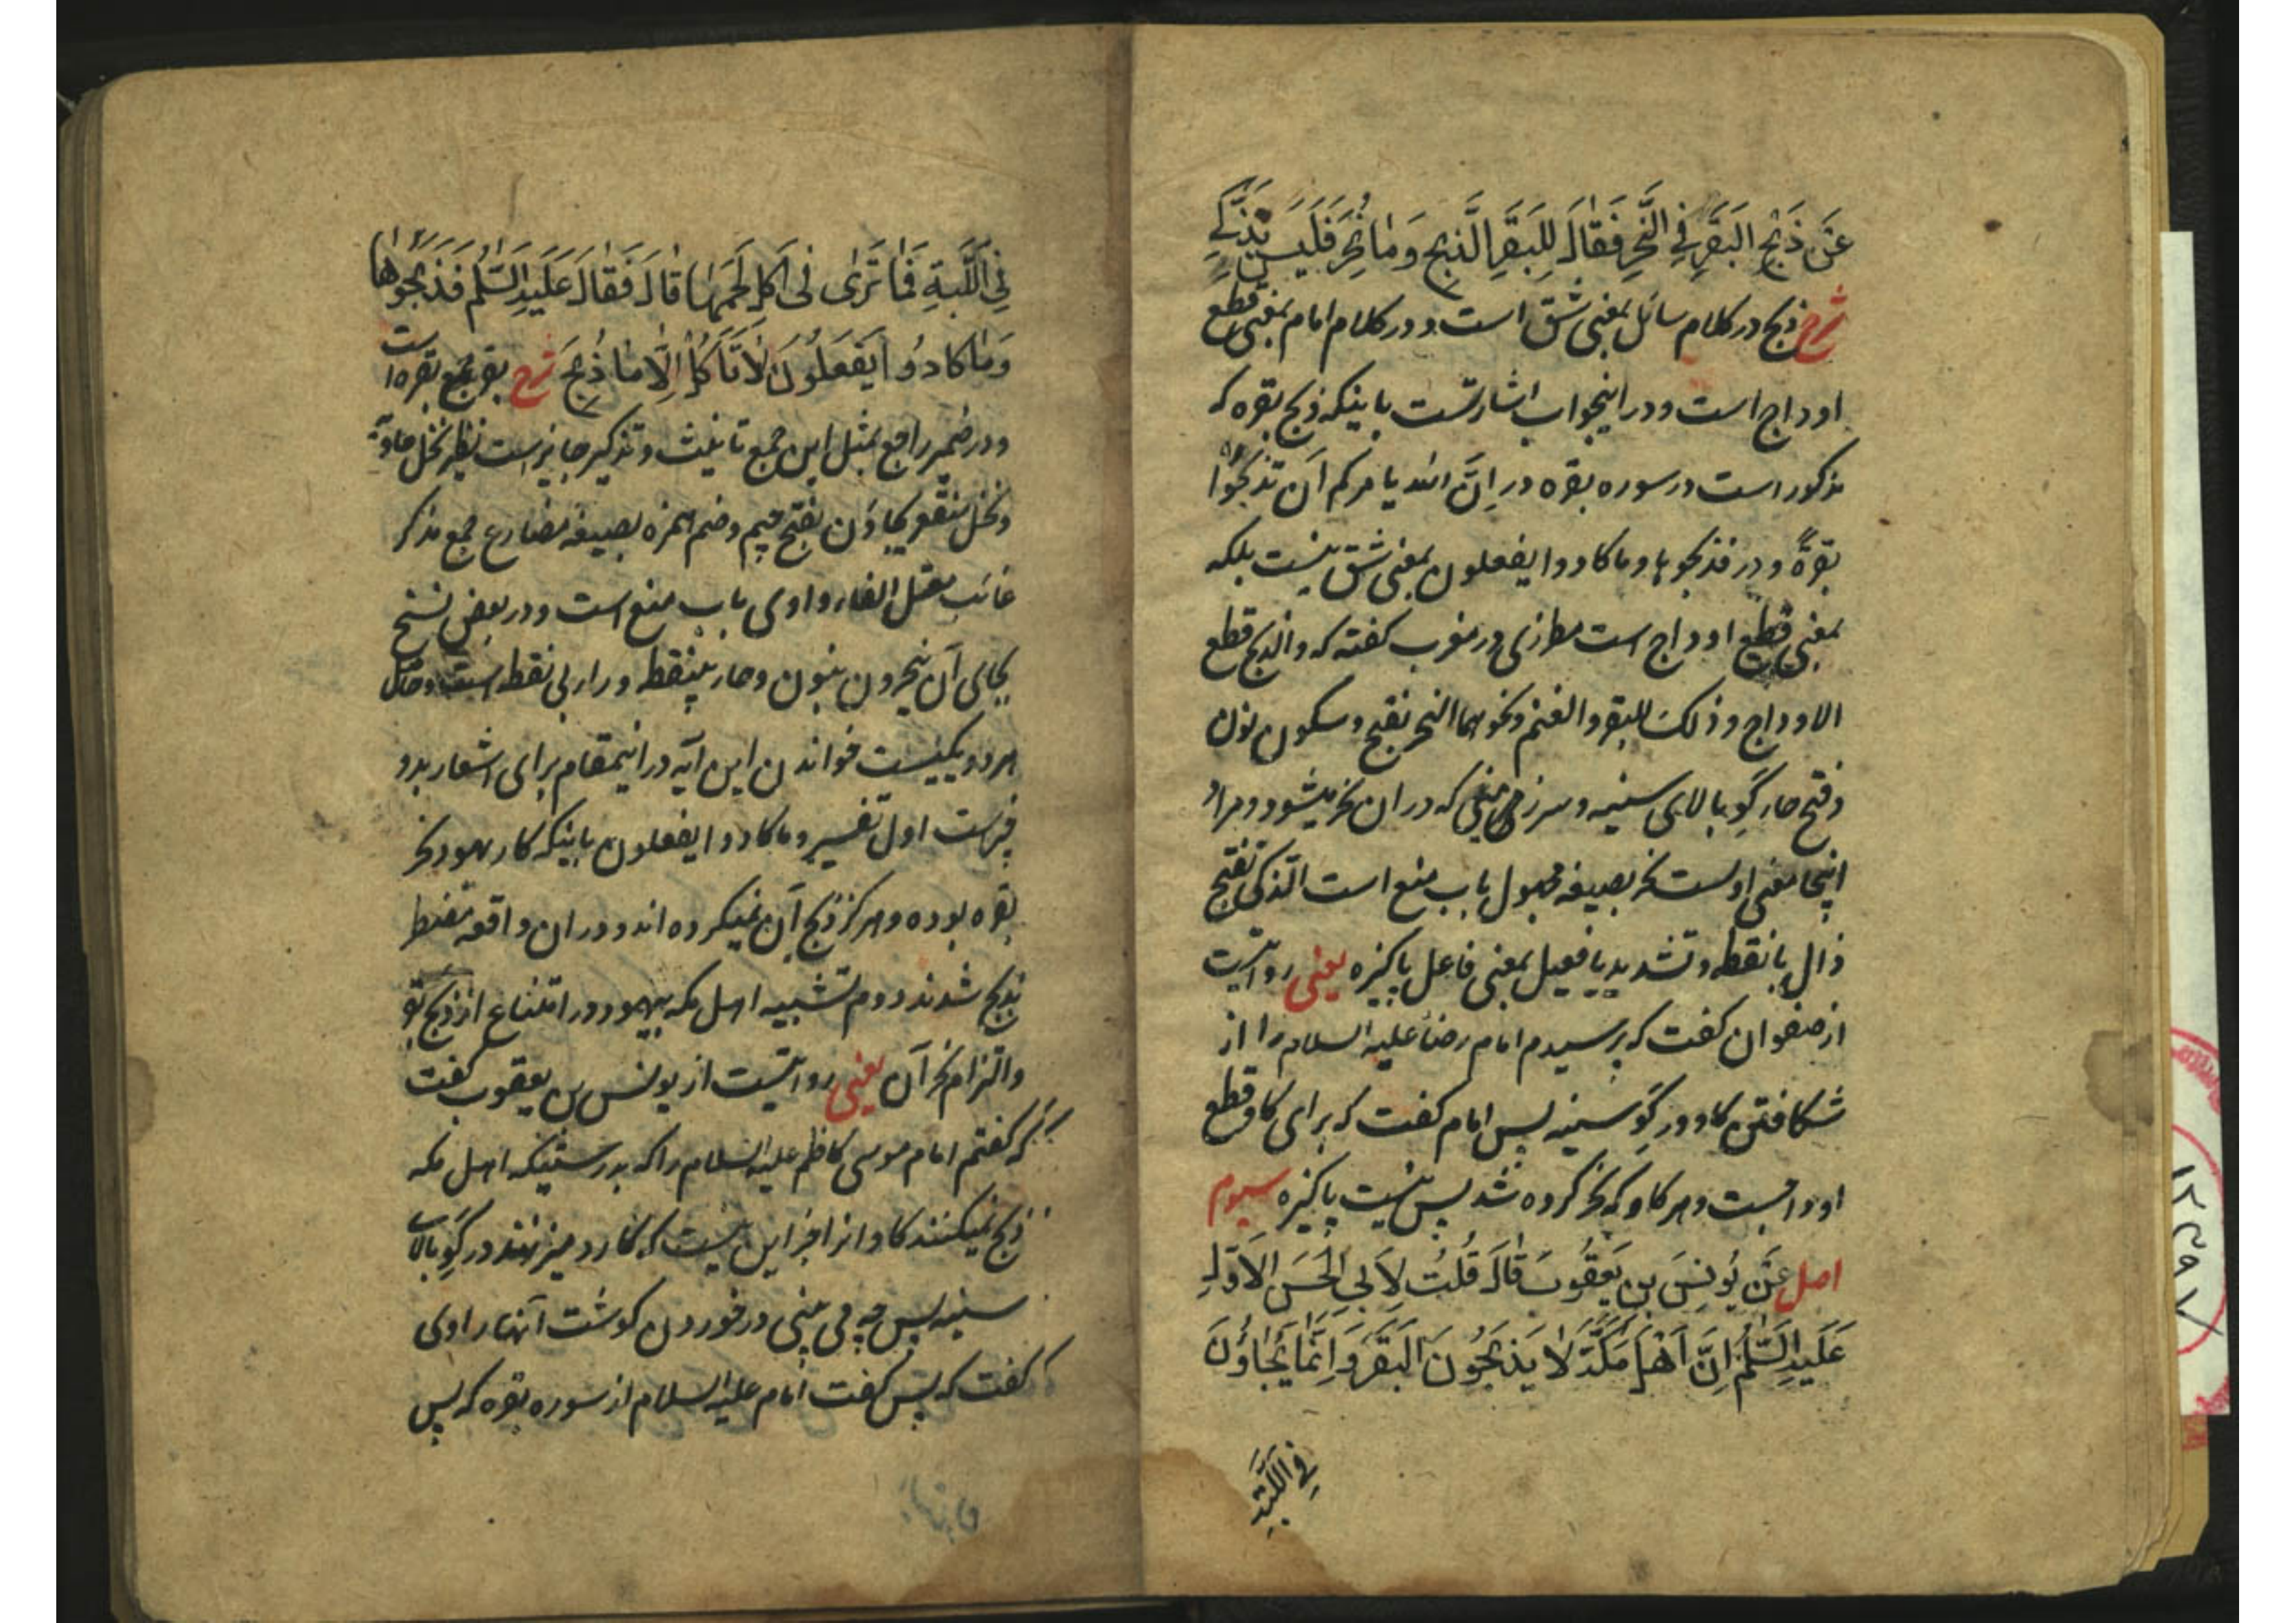 عَنْ ذَبْحِ البَقَرِ فِي النَّحْرِ فَقَالَ لِلبَقَرِ الذَّبْحُ وَمَا نُحِرَ فَلَيْسَ بِذَكِيٍّ
شرح ذبح در کلام سائل بمعنی شق است و در کلام امام بمعنی قطع
اوداج است و در اینجواب اشارتست باینکه ذبح بقره که
مذکور است در سوره بقره در اِنَّ الله یامرکم اَن تذبحُوا
بقرةً و در فذبحوها و ما کادوا یفعلون بمعنی شق نیست بلکه
بمعنی قطع اوداج است مطرزی در مغرب گفته که والذبح قطع
الاوداج و ذلک للبقر والغنم و نحوهما النحر بفتح و سکون نون
و فتح حاء گو بالای سینه و سر زخمی که در ان نحر میشود و مراد
اینجا معنی اولست نحر بصیغه مجهول باب منع است الذکی بفتح
ذال بانقطه و تشدید یا فعیل بمعنی فاعل پاکیزه یعنی روایتست
از صفوان گفت که پرسیدم امام رضا علیه السلام را از
شکافتن گاو در گَو سینه پس امام گفت که برای گاو قطع
اوداجست و هر گاو که نحر کرده شد پس نیست پاکیزه سیوم
اصل عَنْ يُونِسَ بنِ يَعقُوبَ قَالَ قُلتُ لِاَبِي الحَسَنِ الاَوَّلِ
عَلَيهِ السَّلٰمُ اِنَّ اَهْلَ مَكَّةَ لَا يَذبَحُونَ البَقَرَ وَاِنَّمَا يَجَاؤُنَ
فِي اللَّبَّةِ
فِي اللَّبَّةِ فَمَا تَرٰى فِي اَكلِ لَحمِهَا قَالَ فَقَالَ عَلَيهِ السَّلٰمُ فَذَبَحُوهَا
وَمَا كَادُوا يَفعَلُونَ لَا تَاكُل اِلَّا مَا ذُبِحَ شرح بقر جمع بقره است
و در ضمیر راجع بمثل این جمع تانیث و تذکیر جایز است نظیر نخل خاویة
و نخل منقعر یجاؤن بفتح جیم و ضم همزه بصیغه مضارع جمع مذکر
غائب معتل الفاء واوی باب منع است و در بعض نسخ
بجای آن ینحرون بنون و حاء بینقطه و راء بی نقطه است و مآل
هر دو یکیست خواندن این آیه در اینمقام برای اشعار بدو
چیزست اول تفسیر و ما کادوا یفعلون باینکه کار یهود نحر
بقره بوده و هرگز ذبح آن نمیکرده اند و در ان واقعه مضطر
بذبح شدند دوم تشبیه اهل مکه بیهود در امتناع از ذبح بقر
و التزام نحر آن یعنی روایتست از یونس بن یعقوب گفت
که گفتم امام موسی کاظم علیه السلام را که بدرستیکه اهل مکه
ذبح نمیکنند گاو را و جز این نیست که کارد میزنند در گَو بالای
سینه پس چه می بینی در خوردن گوشت آنها راوی
گفت که پس گفت امام علیه السلام از سوره بقره که پس